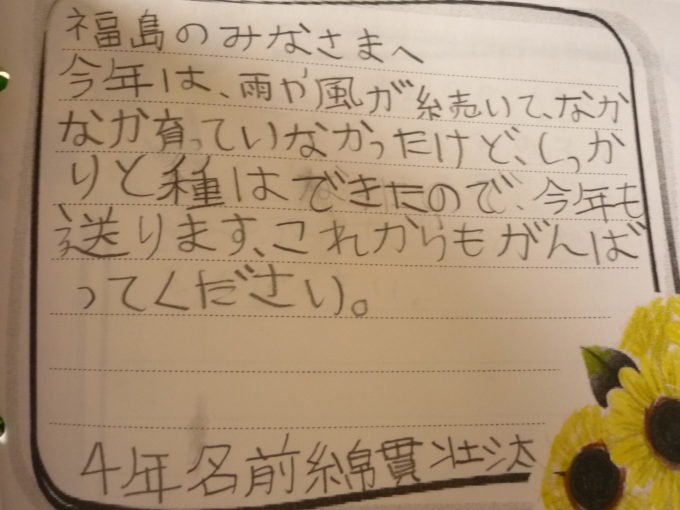 福島のみなさまへ
今年は、雨や風が続いて、なか
なか育っていなかったけど、しっか
りと種はできたので、今年も
送ります、これからもがんば
ってください。
4年名前綿貫壮汰